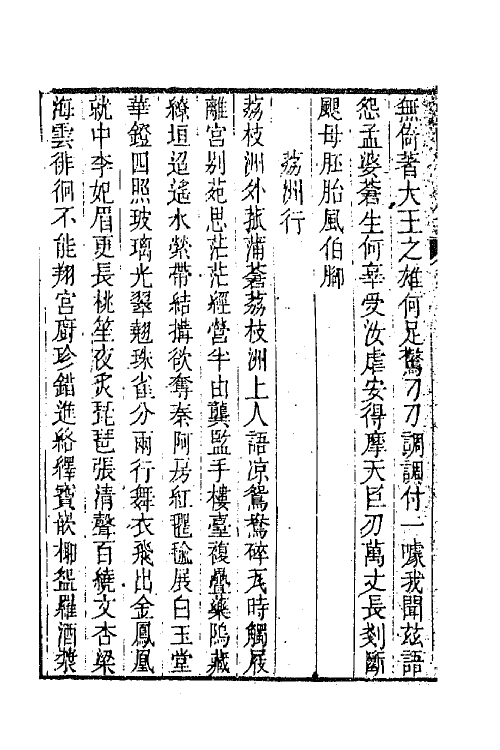 無倚著大王之雄何足驚刀刀調調付一噱我聞玆語
怨孟婆蒼生何辜受汝虐安得摩天巨刃萬丈長剗斷
颶母胚胎風伯腳
荔洲行
荔枝洲外菰蒲蒼荔枝洲上人語凉鴛鴦碎瓦時觸屐
離宮别苑思茫茫經營半由龔監手樓臺複疊藥隖藏
繚垣迢遙水縈帶結搆欲奪秦阿房紅氍毹展白玉堂
華鐙四照玻璃光翠翹珠雀分兩行舞衣飛出金鳳凰
就中李妃眉更長桃笙夜炙琵琶張清聲百繞文杏梁
海雲徘徊不能翔宮廚珍錯進絡繹寳嵌椰盌羅酒漿